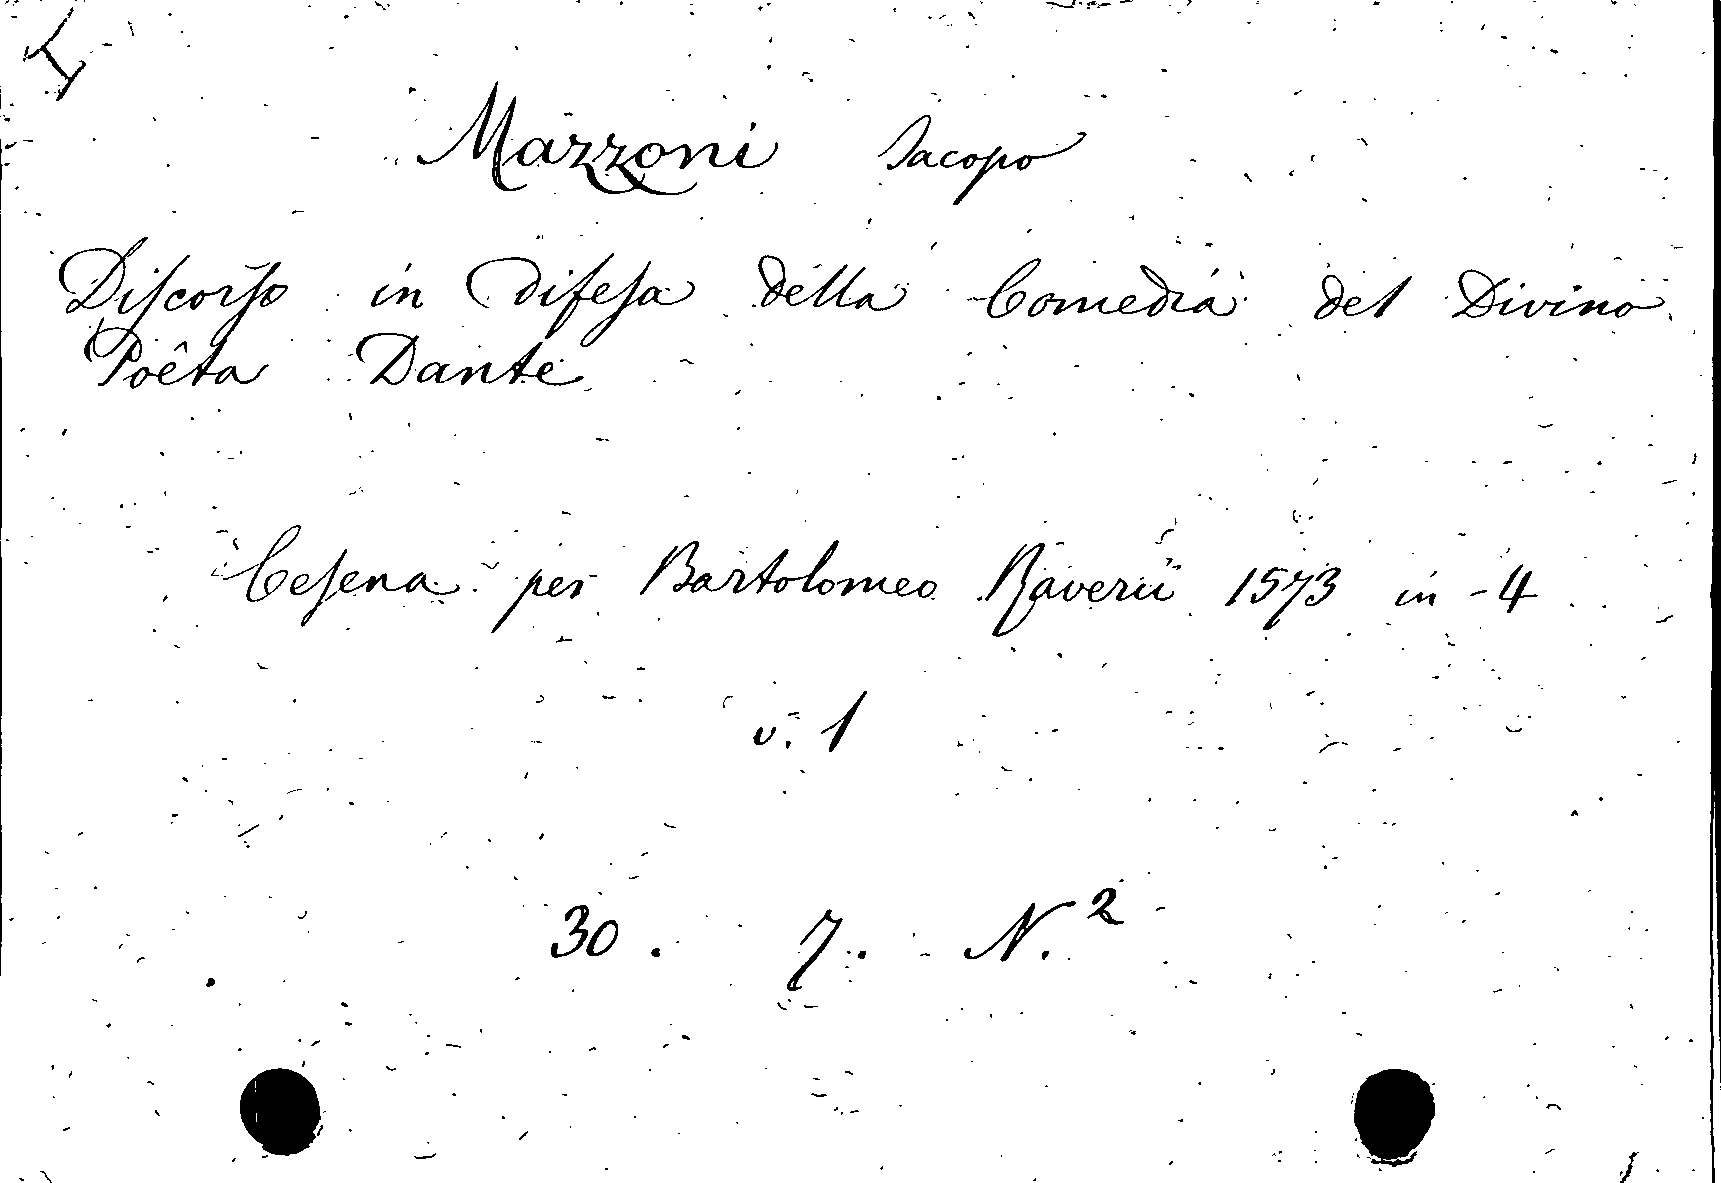 I
Mazzoni Iacopo
Discorso in Difesa della Comedia del Divino
Poêta Dante
Cesena per Bartolomeo Raverii 1573 in-4
v. 1
30. 7. N.2